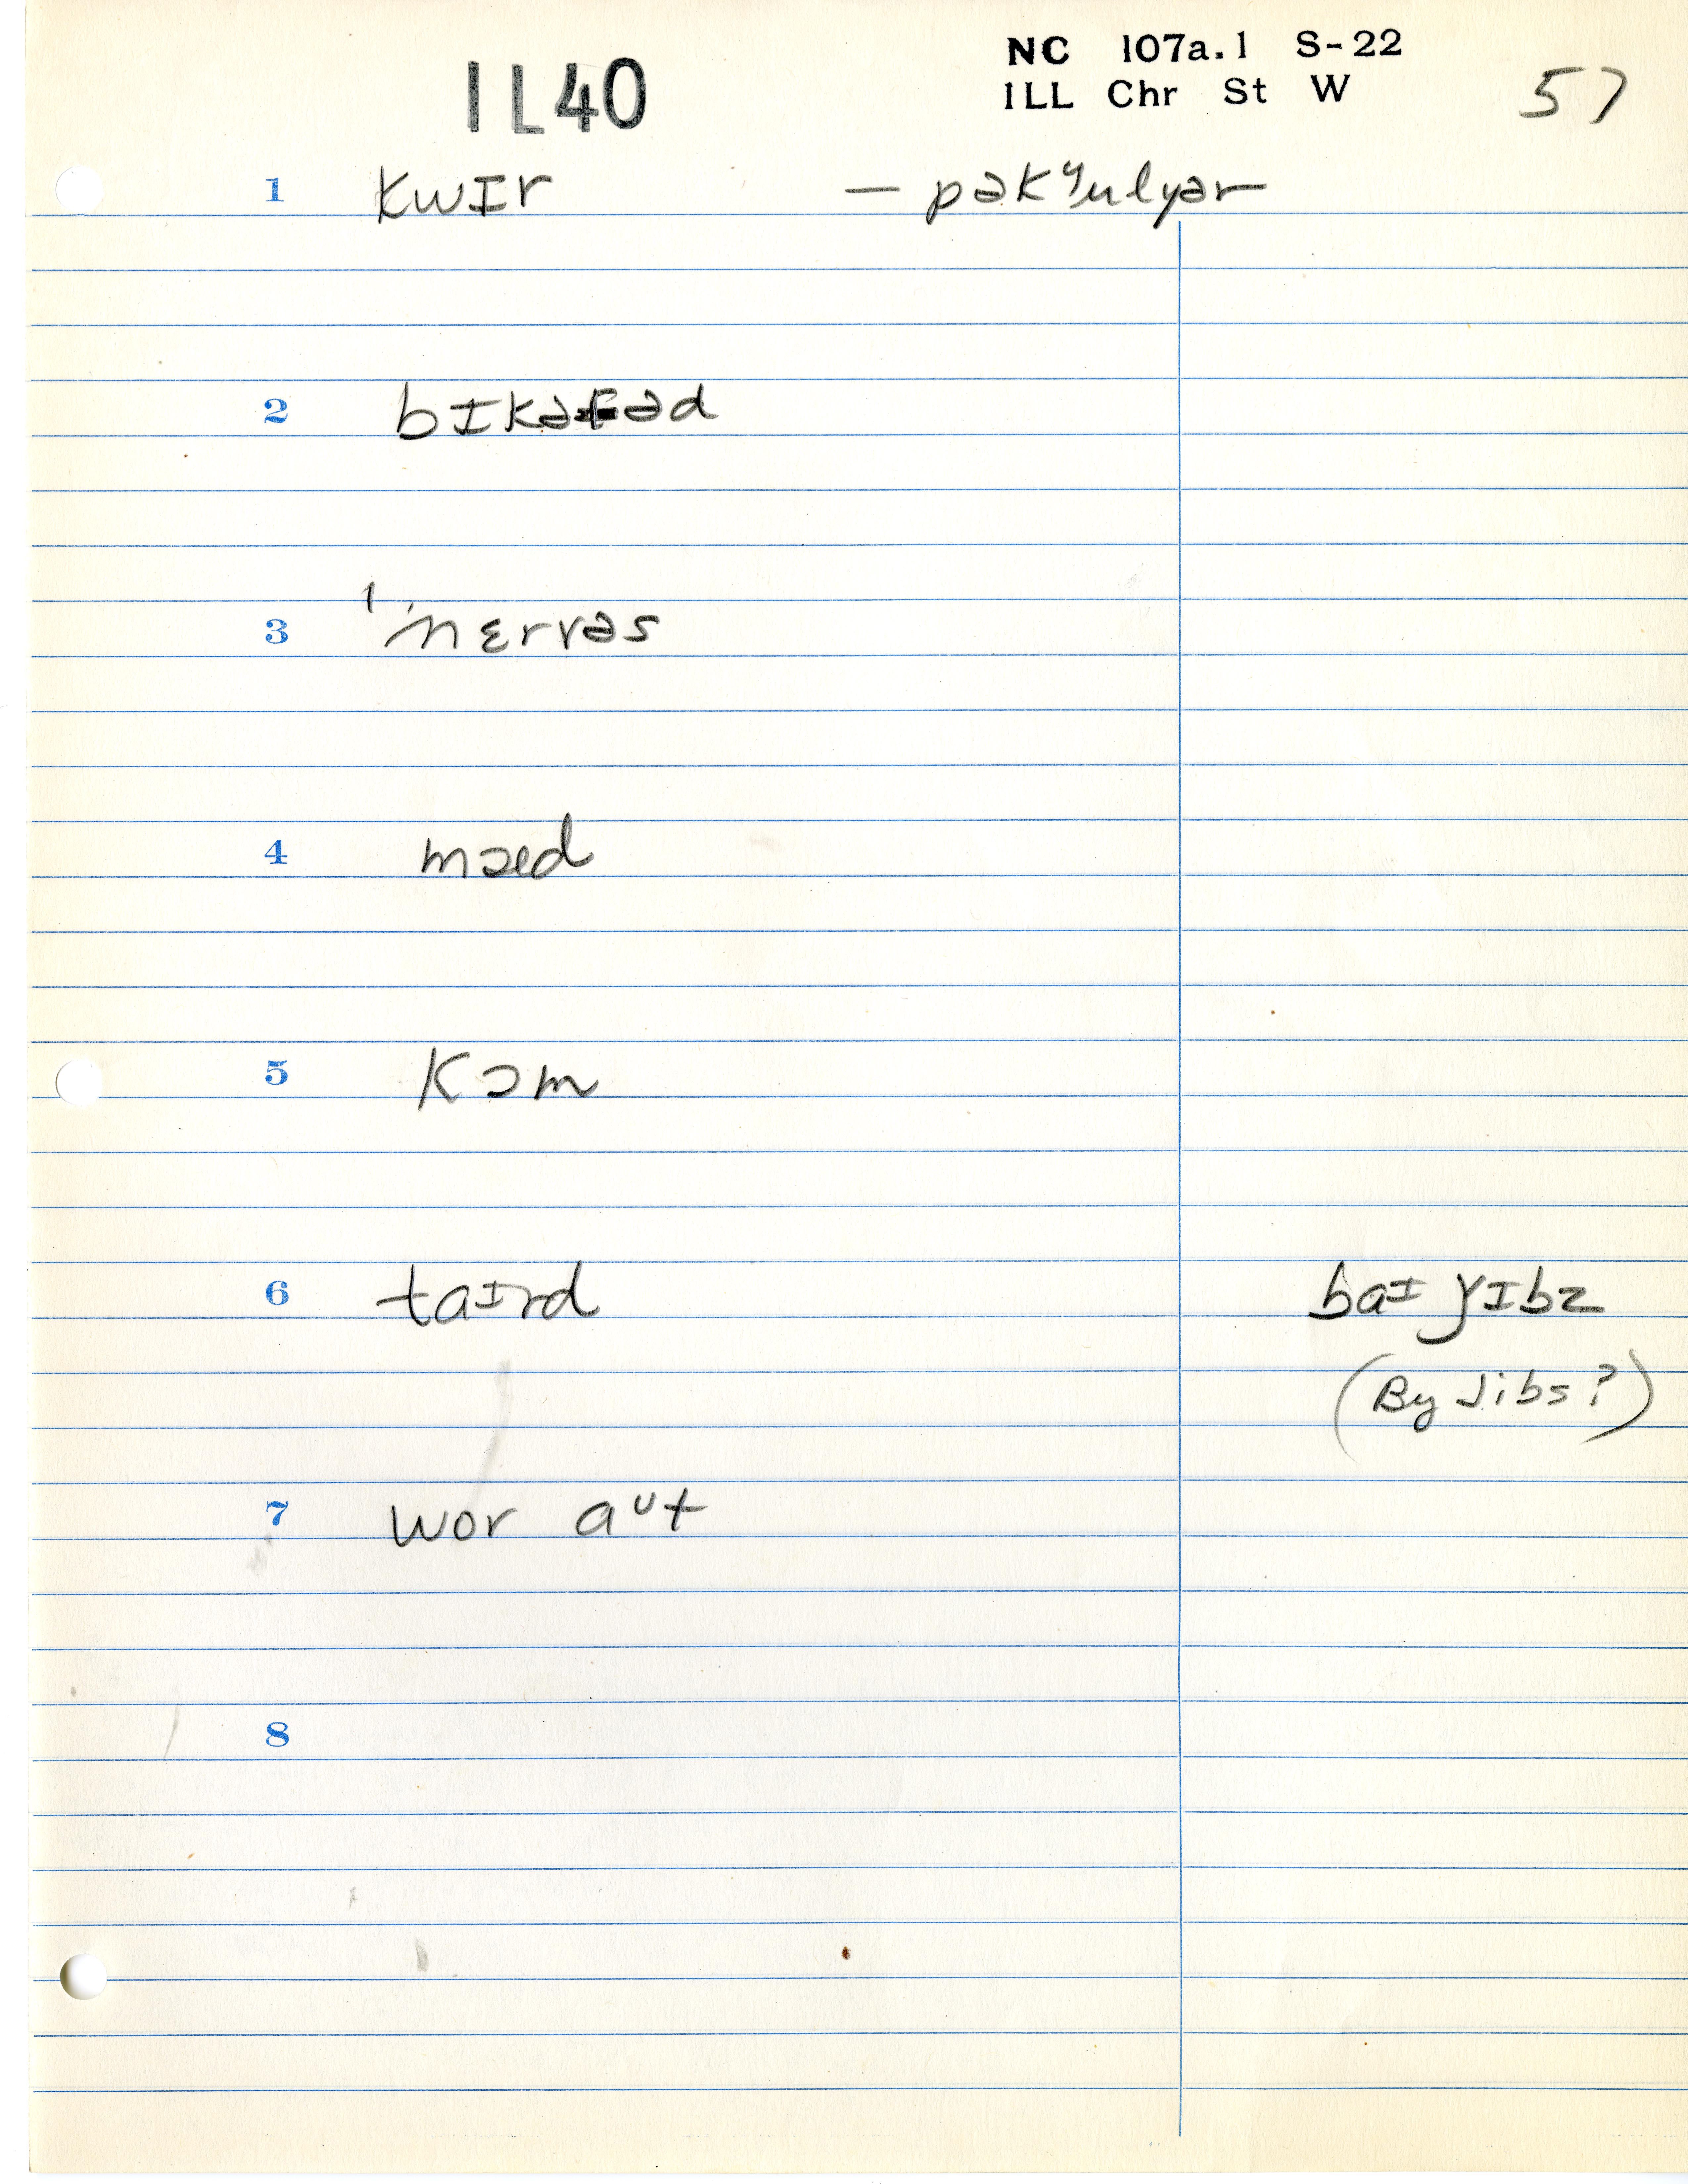 IL40
NC 107a.1 S-22
ILL Chr St W
57
1 kwɪr — pəkʸulyər
2 bɪkəfəd
3 'nɛrvəs
4 mæd
5 kɔm
6 taɪrd baɪ ǰɪbz
(By Jibs?)
7 wor aᵘt
8